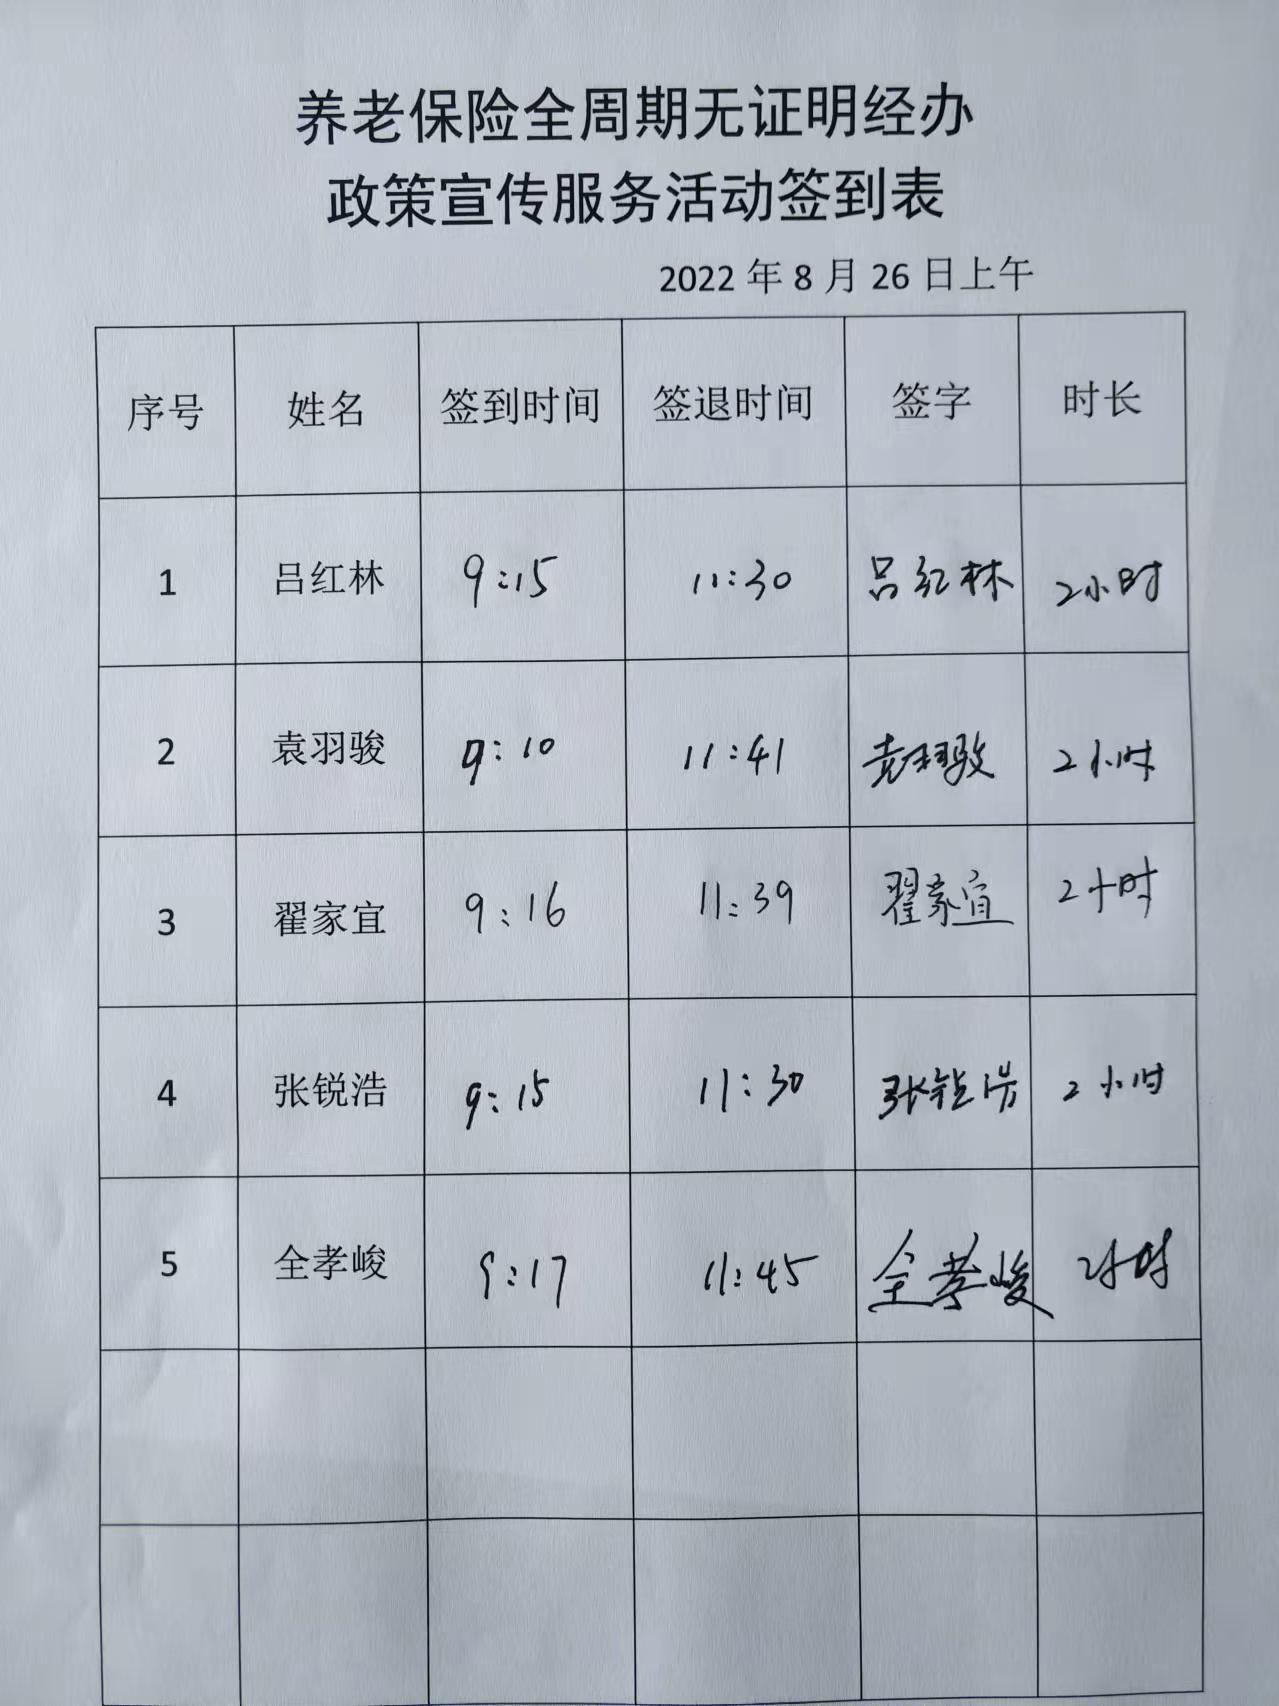 养老保险全周期无证明经办
政策宣传服务活动签到表
2022 年 8 月 26 日上午
序号 姓名 签到时间 签退时间 签字 时长
1 吕红林 9:15 11:30 吕红林 2小时
2 袁羽骏 9:10 11:41 袁羽骏 2小时
3 翟家宜 9:16 11:39 翟家宜 2小时
4 张锐浩 9:15 11:30 张锐浩 2小时
5 全孝峻 9:17 11:45 全孝峻 2小时